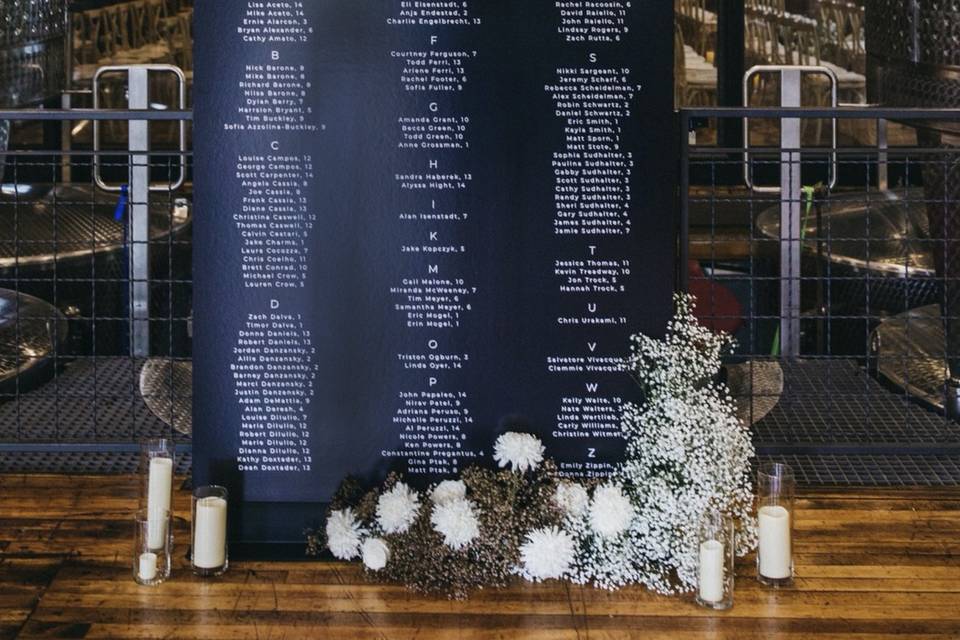 Lisa Aceto, 14
Mike Aceto, 14
Ernie Alarcon, 3
Bryan Alexander, 6
Cathy Amato, 12
B
Nick Barone, 8
Mike Barone, 8
Richard Barone, 8
Nilsa Barone, 8
Dylan Berry, 7
Harrsion Bryant, 5
Tim Buckley, 9
Sofia Azzolina-Buckley, 9
C
Louise Campos, 12
George Campos, 12
Scott Carpenter, 14
Angela Cassia, 8
Joe Cassia, 8
Frank Cassia, 13
Diane Cassia, 13
Christina Caswell, 12
Thomas Caswell, 12
Calvin Cestari, 5
Jake Charms, 1
Laura Cocozza, 7
Chris Coelho, 11
Brett Conrad, 10
Michael Crow, 5
Lauren Crow, 5
D
Zach Dalva, 1
Timor Dalva, 1
Donna Daniels, 13
Robert Daniels, 13
Jordan Danzansky, 2
Allie Danzansky, 2
Brandon Danzansky, 2
Barney Danzansky, 2
Marci Danzansky, 2
Justin Danzansky, 2
Adam DeMattia, 9
Alan Doresh, 4
Louise Dilulio, 7
Maria Dilulio, 12
Robert Dilulio, 12
Marie Dilulio, 12
Dianna Dilulio, 12
Kathy Doxtader, 13
Dean Doxtader, 13
Eli Eisenstat, 6
Anja Endestad, 2
Charlie Engelbrecht, 13
F
Courtney Ferguson, 7
Todd Ferri, 13
Arlene Ferri, 13
Rachel Footer, 6
Sofia Fuller, 9
G
Amanda Grant, 10
Becca Green, 10
Todd Green, 10
Anne Grossman, 1
H
Sandra Haberek, 13
Alyssa Hight, 14
I
Alan Isenstadt, 7
K
Jake Kopczyk, 5
M
Gail Malone, 10
Miranda McWeeney, 7
Tim Meyer, 6
Samantha Meyer, 6
Eric Mogel, 1
Erin Mogel, 1
O
Triston Ogburn, 3
Linda Oyer, 14
P
John Papaleo, 14
Nirav Patel, 9
Adriana Peruso, 9
Michelle Peruzzi, 14
Al Peruzzi, 14
Nicole Powers, 8
Ken Powers, 8
Constantine Pregantus, 4
Gina Ptak, 8
Matt Ptak, 8
Rachel Racoosin, 6
David Raiello, 11
John Raiello, 11
Lindsay Rogers, 9
Zach Rutta, 6
S
Nikki Sargeant, 10
Jeremy Scharf, 6
Rebecca Scheidelman, 7
Alex Scheidelman, 7
Robin Schwartz, 2
Daniel Schwartz, 2
Eric Smith, 1
Kayla Smith, 1
Matt Sporn, 1
Matt Stote, 9
Sophia Sudhalter, 3
Paulina Sudhalter, 3
Gabby Sudhalter, 3
Scott Sudhalter, 3
Cathy Sudhalter, 3
Randy Sudhalter, 3
Sheri Sudhalter, 4
Gary Sudhalter, 4
James Sudhalter, 4
Jamie Sudhalter, 7
T
Jessica Thomas, 11
Kevin Treadway, 10
Jon Trock, 5
Hannah Trock, 5
U
Chris Urakami, 11
V
Salvatore Vivacqua,
Clemmie Vivacqua,
W
Kelly Waite, 10
Nate Walters,
Linda Wertlieb,
Carly Williams,
Christine Witmer,
Z
Emily Zippin, 11
Donna Zippin